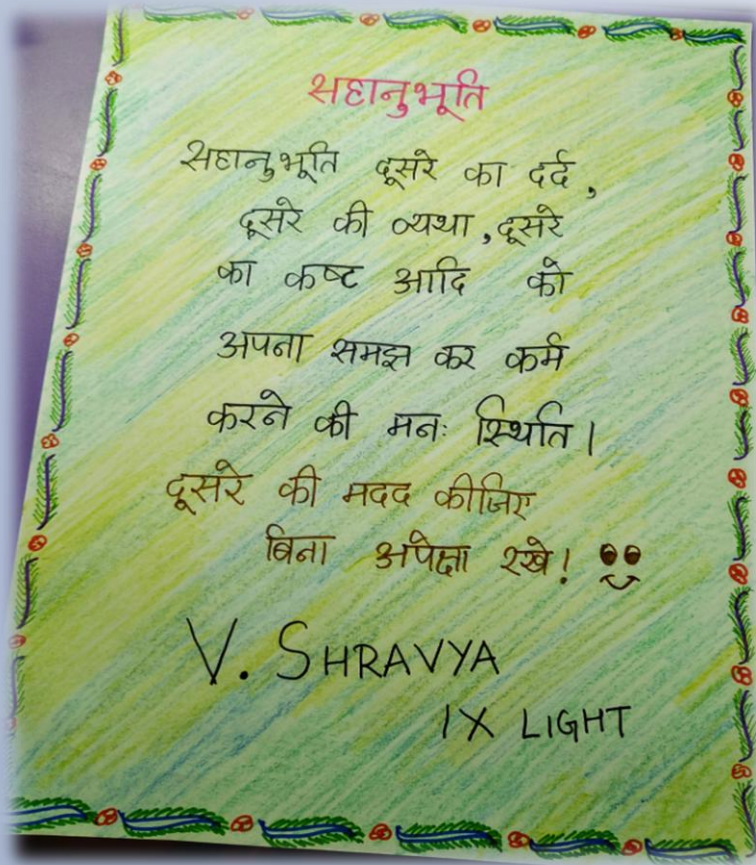 सहानुभूति
सहानुभूति दूसरे का दर्द,
दूसरे की व्यथा, दूसरे
का कष्ट आदि को
अपना समझ कर कर्म
करने की मनः स्थिति।
दूसरे की मदद कीजिए
बिना अपेक्षा रखे!
V. SHRAVYA
IX LIGHT